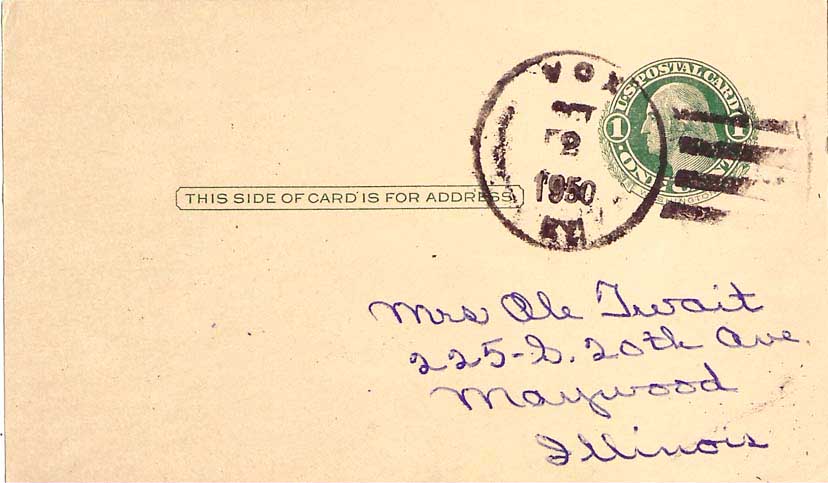 VOX
2
1950
KY
U.S. POSTAL CARD
1 1
ONE
WASHINGTON
THIS SIDE OF CARD IS FOR ADDRESS
Mrs Ole Twait
225-S. 20th Ave.
Maywood
Illinois